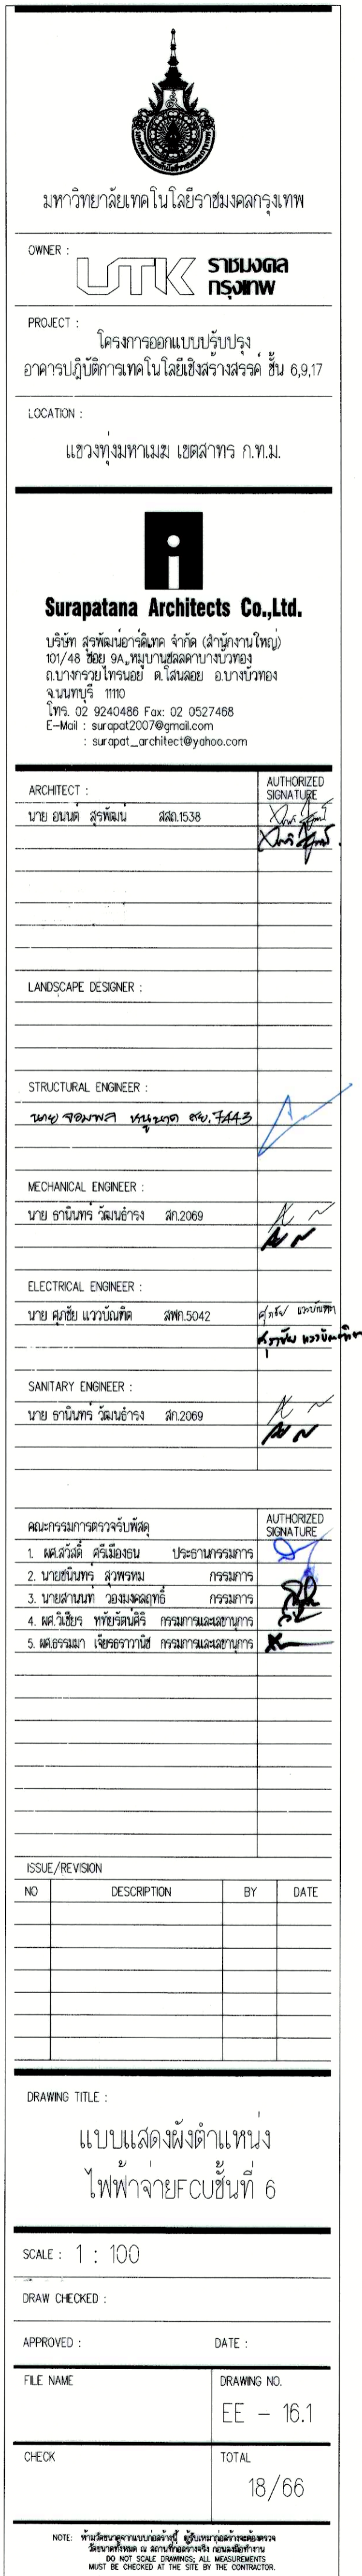 มหาวิทยาลัยเทคโนโลยีราชมงคลกรุงเทพ
OWNER :
UTK ราชมงคล
กรุงเทพ
PROJECT :
โครงการออกแบบปรับปรุง
อาคารปฎิบัติการเทคโนโลยีเชิงสร้างสรรค์ ชั้น 6,9,17
LOCATION :
แขวงทุ่งมหาเมฆ เขตสาทร ก.ท.ม.
Surapatana Architects Co.,Ltd.
บริษัท สุรพัฒน์อาร์คิเทค จำกัด (สำนักงานใหญ่)
101/48 ซอย 9A, หมู่บานชลลดาบางบัวทอง
ถ.บางกรวยไทรน้อย ต.โสนลอย อ.บางบัวทอง
จ.นนทบุรี 11110
โทร. 02 9240486 Fax: 02 0527468
E-Mail : surapat2007@gmail.com
: surapat_architect@yahoo.com
ARCHITECT :
AUTHORIZED
SIGNATURE
นาย อนนต์ สุรพัฒน์ สสถ.1538
LANDSCAPE DESIGNER :
STRUCTURAL ENGINEER :
นาย จอมพล สย.7443
MECHANICAL ENGINEER :
นาย ธานินทร์ วัฒนธำรง สก.2069
ELECTRICAL ENGINEER :
นาย ศุภชัย แววบัณฑิต สฟก.5042
ศุภชัย แววบัณฑิต
ศุภชัย แววบัณฑิต
SANITARY ENGINEER :
นาย ธานินทร์ วัฒนธำรง สก.2069
คณะกรรมการตรวจรับพัสดุ
AUTHORIZED
SIGNATURE
1. ผศ.สวัสดิ์ ศรีเมืองธน ประธานกรรมการ
2. นายชนินทร์ สุวพรหม กรรมการ
3. นายสานนท์ วองมงคลฤทธิ์ กรรมการ
4. ผศ.วิเชียร หทัยรัตน์ศิริ กรรมการและเลขานุการ
5. ผศ.ธรรมมา เจียรธราวานิช กรรมการและเลขานุการ
ISSUE/REVISION
NO DESCRIPTION BY DATE
DRAWING TITLE :
แบบแสดงผังตำแหน่ง
ไฟฟ้าจ่ายFCUชั้นที่ 6
SCALE : 1 : 100
DRAW CHECKED :
APPROVED : DATE :
FILE NAME DRAWING NO.
EE - 16.1
CHECK TOTAL
18/66
NOTE: ห้ามวัดขนาดจากแบบก่อสร้างนี้ ผู้รับเหมาก่อสร้างจะต้องตรวจ
วัดขนาดทั้งหมด ณ สถานที่ก่อสร้างจริง ก่อนลงมือทำงาน
DO NOT SCALE DRAWINGS; ALL MEASUREMENTS
MUST BE CHECKED AT THE SITE BY THE CONTRACTOR.